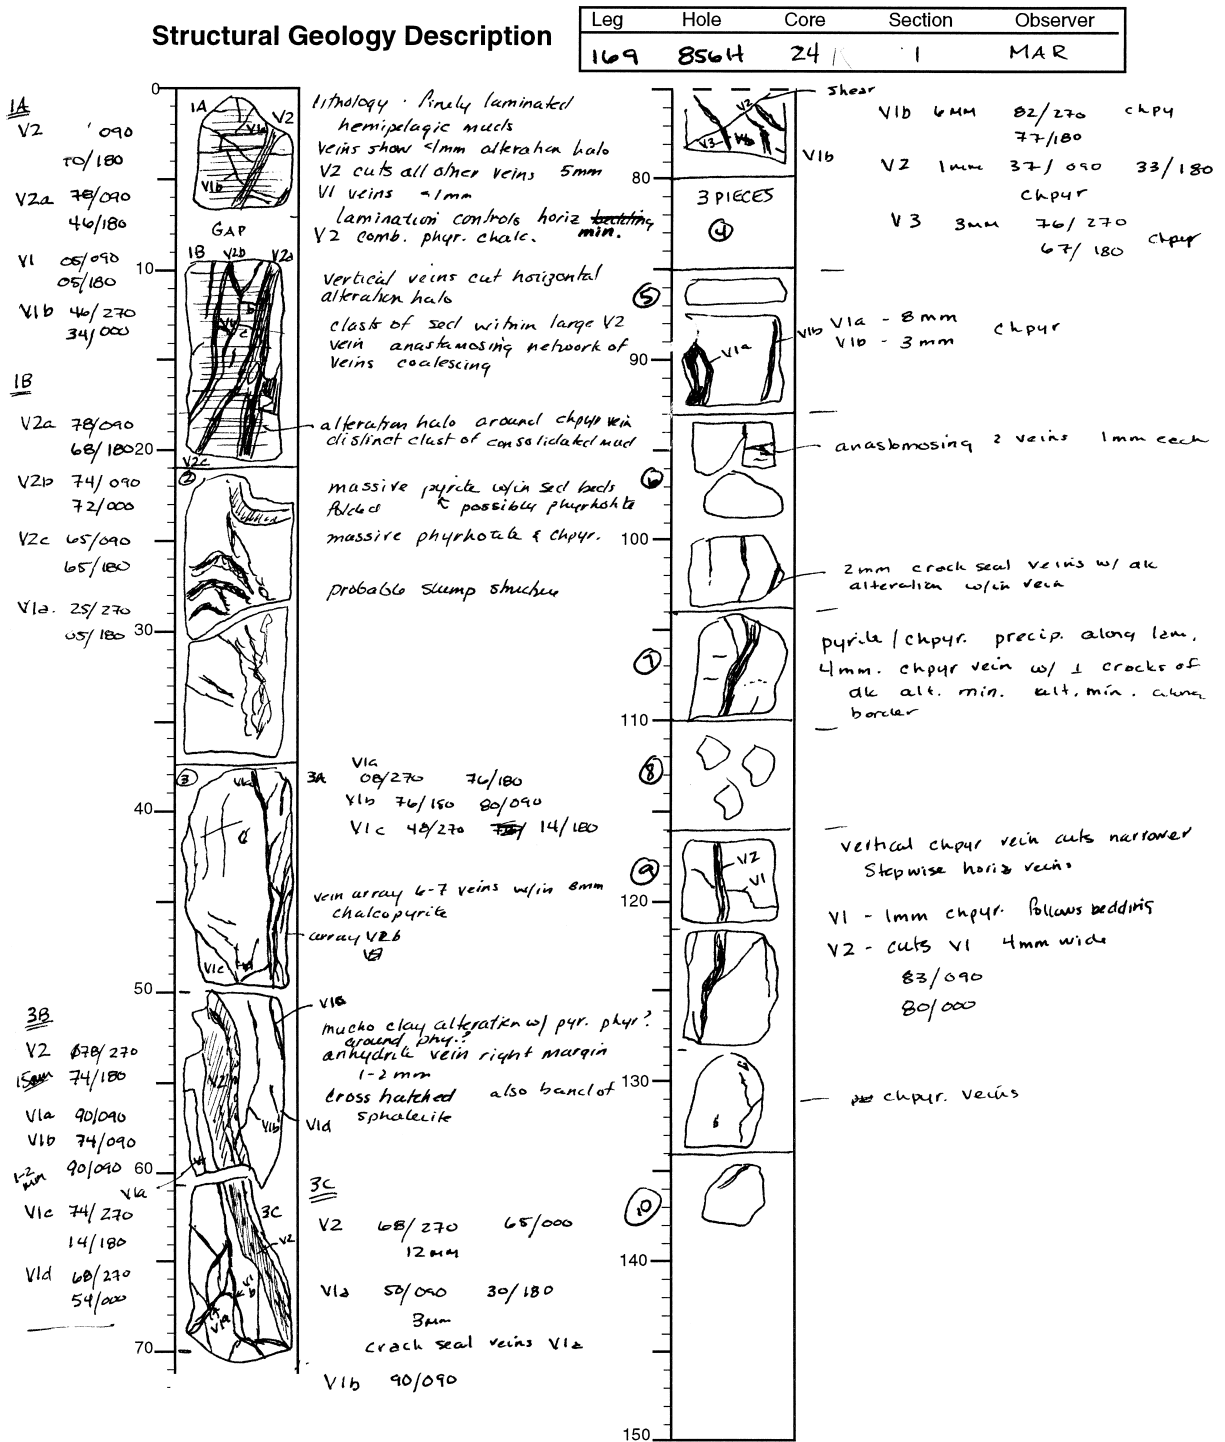 Structural Geology Description
Leg Hole Core Section Observer
169 856H 24 1 MAR
0
10
20
30
40
50
60
70
1A
V2 090
70/180
V2a 78/090
46/180
V1 05/090
05/180
V1b 46/270
34/000
1B
V2a 78/090
68/180
V2b 74/090
72/000
V2c 65/090
65/180
V1a. 25/270
05/180
3B
V2 78/270
15mm 74/180
V1a 90/090
V1b 74/090
1-2 mm 90/090
V1a
V1c 74/270
14/180
V1d 68/270
54/000
1A V2
V1a
V1b
GAP
1B V2b V2a
V2c
2
3 V1a
V1c
V2
V1b
3C
V2
V1b
V1a
lithology . finely laminated
hemipelagic muds
veins show <1mm alteration halo
V2 cuts all other veins 5mm
V1 veins <1mm
lamination controls horiz bedding
min.
V2 comb. phyr. chalc.
vertical veins cut horizontal
alteration halo
clasts of sed within large V2
vein anastamosing network of
veins coalescing
alteration halo around chpyr vein
distinct clast of consolidated mud
massive pyrite w/in sed beds
folded possibly phyrhotite
massive phyrhotite & chpyr.
probable slump structure
V1a
3A 08/270 76/180
V1b 76/180 80/090
V1c 48/270 14/180
vein array 6-7 veins w/in 8mm
chalcopyrite
array V2b
V1a
mucho clay alteration w/ pyr. phyr?
around phy.?
anhydrite vein right margin
1-2 mm
cross hatched also band of
sphalerite
V1d
3C
V2 68/270 65/000
12mm
V1a 50/090 30/180
3mm
crack seal veins V1a
V1b 90/090
80
90
100
110
120
130
140
150
V2
V3 V1b
shear
V1b
V1b 6mm 82/270 chpy
77/180
V2 1mm 37/090 33/180
chpyr
V3 3mm 76/270
67/180 chpyr
3 PIECES
4
5
V1a
V1b
V1a - 8mm
V1b - 3mm chpyr
6
anastomosing 2 veins 1mm each
2mm crack seal veins w/ dk
alteration w/in vein
7
pyrite/chpyr. precip. along lam.
4mm. chpyr vein w/ ⊥ cracks of
dk alt. min. alt. min. along
border
8
9
V2
V1
vertical chpyr vein cuts narrower
stepwise horiz veins
V1 - 1mm chpyr. follows bedding
V2 - cuts V1 4mm wide
83/090
80/000
chpyr. veins
10